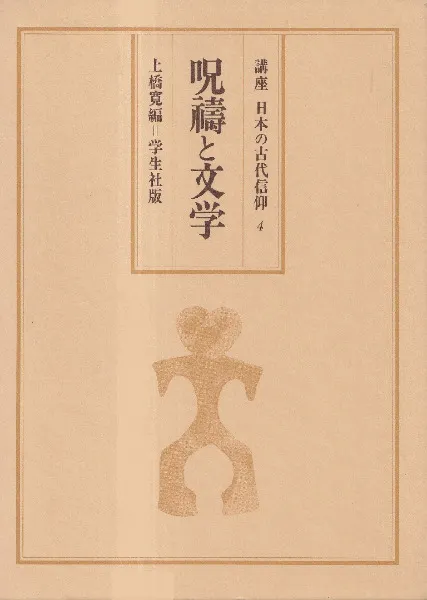 講座 日本の古代信仰 4
呪禱と文学
土橋寛編=学生社版